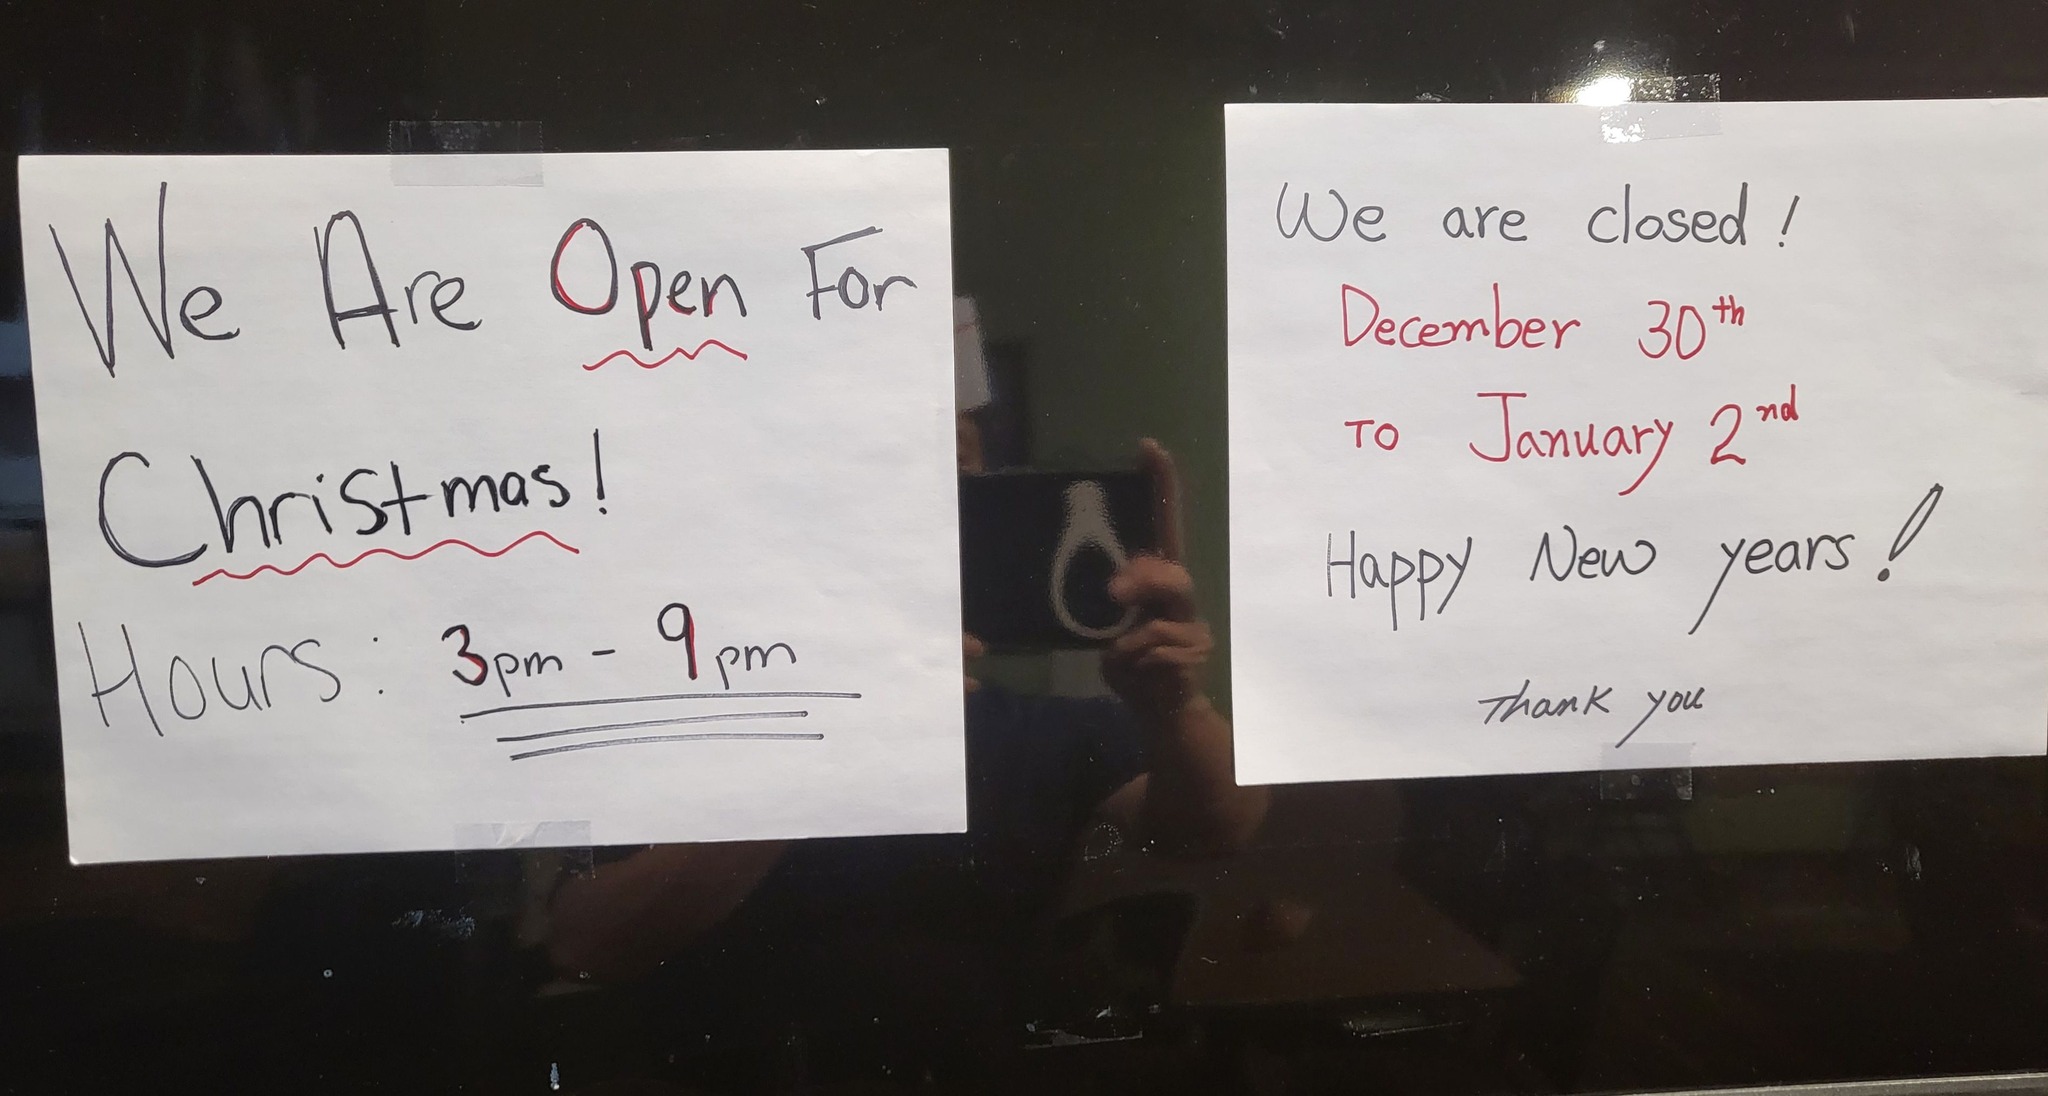 We Are Open For
Christmas!
Hours: 3pm - 9pm
We are closed!
December 30th
TO January 2nd
Happy New years!
Thank you